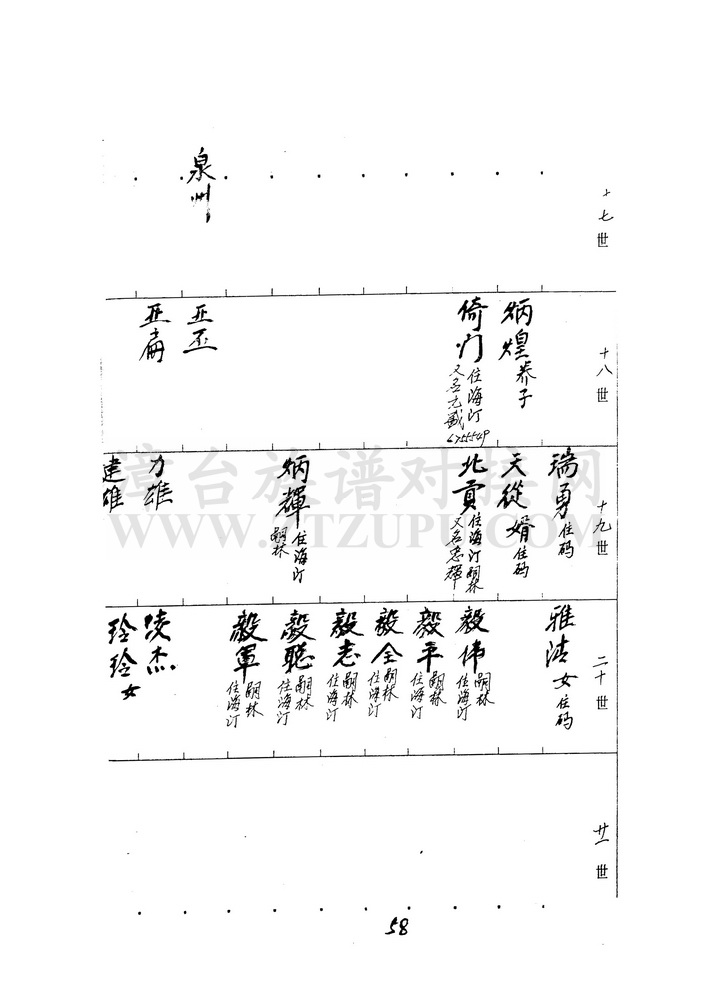 十七世
泉州
十八世
炳煌养子
倚门住海汀
亚丕
亚扁
十九世
瑞勇住码
天從婿住码
北貢住海汀嗣林
又名志輝
炳輝住海汀
嗣林
力雄
建雄
二十世
雅洁女住码
毅伟嗣林
住海汀
毅平嗣林
住海汀
毅全嗣林
住海汀
毅志嗣林
住海汀
毅聪嗣林
住海汀
毅軍嗣林
住海汀
凌杰
玲玲女
廿一世
58
漳台族谱对接网
WWW.ZTZUPU.COM